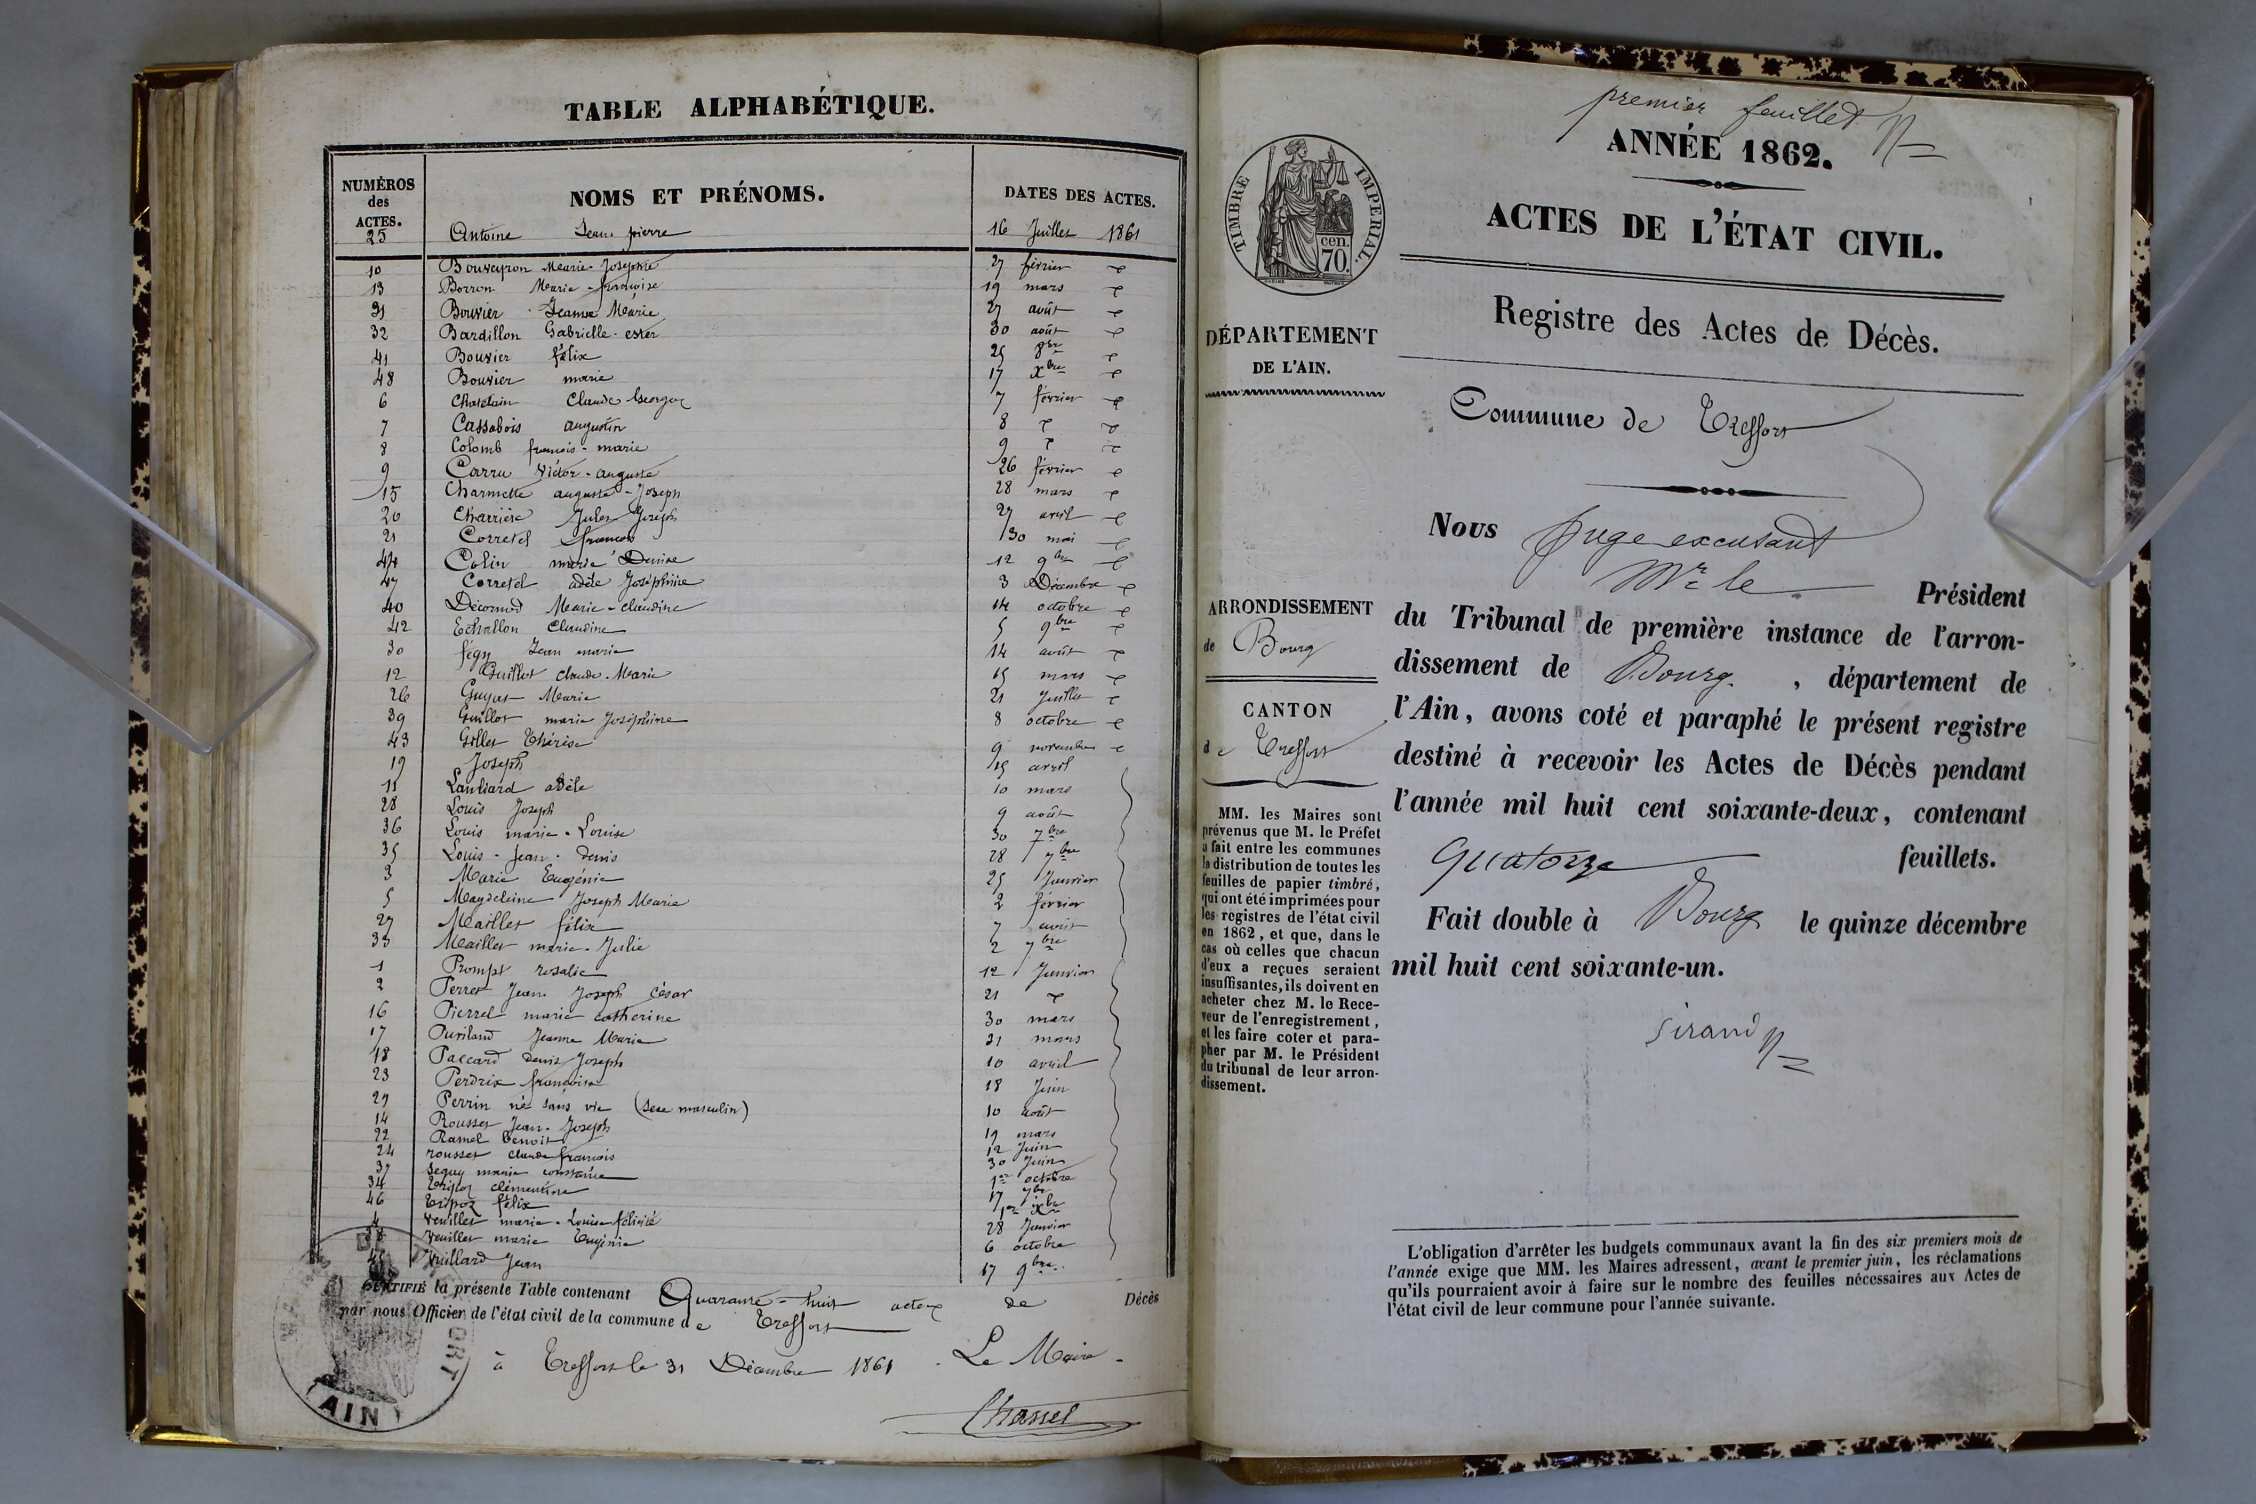 TABLE ALPHABÉTIQUE.
NUMÉROS des ACTES. NOMS ET PRÉNOMS. DATES DES ACTES.
25 Antoine Jean pierre 16 Juillet 1861
10 Bouveyron Marie-Josephte 27 février
13 Borron Marie-françoise 19 mars
31 Bouvier Jeanne Marie 27 août
32 Bardillon Gabrielle-ester 30 août
41 Bouvier félix 25 8bre
48 Bouvier marie 17 Xbre
6 Chatelain Claude George 7 février
7 Cassabois augustin 8
8 Colomb françois-marie 9
9 Carru Victor-auguste 26 février
15 Charnette auguste-Joseph 28 mars
20 Charrière Jules Joseph 27 avril
21 Corretel françois 30 mai
44 Colin marie Denise 12 9bre
47 Corretel adèle Joséphine 3 Décembre
40 Décormod Marie-claudine 14 octobre
42 Echallon Claudine 5 9bre
30 fégy Jean marie 14 août
12 Guillot claude-Marie 15 mars
26 Guyat Marie 21 Juillet
39 Guillot marie Joséphine 8 octobre
43 Gillet Thérèse 9 novembre
19 Joseph 15 avril
11 Lantiard adèle 10 mars
28 Louis Joseph 9 août
36 Louis marie-Louise 30 7bre
35 Louis-Jean-denis 28 7bre
3 Marie Eugénie 25 Janvier
5 Magdeleine Joseph Marie 2 février
27 Maillet félix 7 août
33 Maillet marie-Julie 2 7bre
1 Prompt rosalie 12 Janvier
2 Perret Jean Joseph César 21
16 Pierrel marie catherine 30 mars
17 Jeanne Marie 31 mars
18 Paccard denis Joseph 10 avril
23 Perdrix françoise 18 Juin
29 Perrin né sans vie (sexe masculin) 10 août
14 Rousset Jean-Joseph 19 mars
22 Ramel benoit 12 Juin
24 rousset claude françois 30 Juin
37 Seguy marie constance 1er octobre
34 Tripoz clémentine 17 7bre
46 Tripoz félix 1er Xbre
4 Veuillet marie-Louise félicité 28 Janvier
38 Veuillet marie Eugénie 6 octobre
45 Vuillard Jean 17 9bre
CERTIFIÉ la présente Table contenant Quarante-huit actes de Décès
par nous Officier de l'état civil de la commune de Treffort
à Treffort le 31 Décembre 1861. Le Maire
Chossel
AIN
premier feuillet
ANNÉE 1862.
ACTES DE L'ÉTAT CIVIL.
Registre des Actes de Décès.
TIMBRE IMPÉRIAL.
cen.
70.
DÉPARTEMENT
DE L'AIN.
ARRONDISSEMENT
de Bourg
CANTON
de Treffort
MM. les Maires sont
prévenus que M. le Préfet
a fait entre les communes
la distribution de toutes les
feuilles de papier timbré,
qui ont été imprimées pour
les registres de l'état civil
en 1862, et que, dans le
cas où celles que chacun
d'eux a reçues seraient
insuffisantes, ils doivent en
acheter chez M. le Rece-
veur de l'enregistrement,
et les faire coter et para-
pher par M. le Président
du tribunal de leur arron-
dissement.
Commune de Treffort
Nous Juge excusant
Mr le Président
du Tribunal de première instance de l'arron-
dissement de Bourg, département de
l'Ain, avons coté et paraphé le présent registre
destiné à recevoir les Actes de Décès pendant
l'année mil huit cent soixante-deux, contenant
quatorze feuillets.
Fait double à Bourg le quinze décembre
mil huit cent soixante-un.
Sirand
L'obligation d'arrêter les budgets communaux avant la fin des six premiers mois de
l'année exige que MM. les Maires adressent, avant le premier juin, les réclamations
qu'ils pourraient avoir à faire sur le nombre des feuilles nécessaires aux Actes de
l'état civil de leur commune pour l'année suivante.